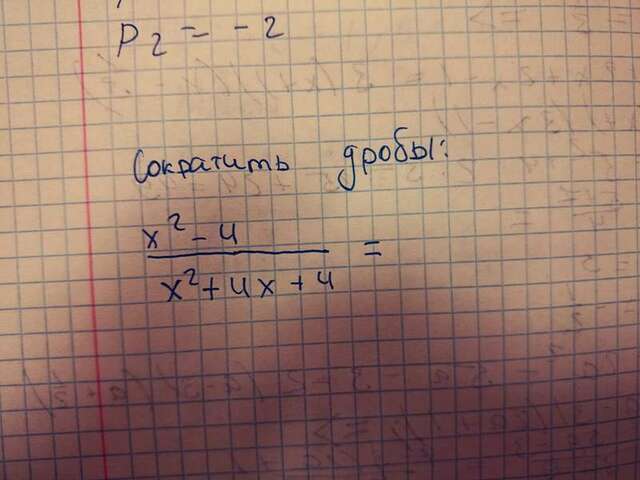 P2 = -2
Сократить дробы:
x² - 4
x² + 4x + 4 =